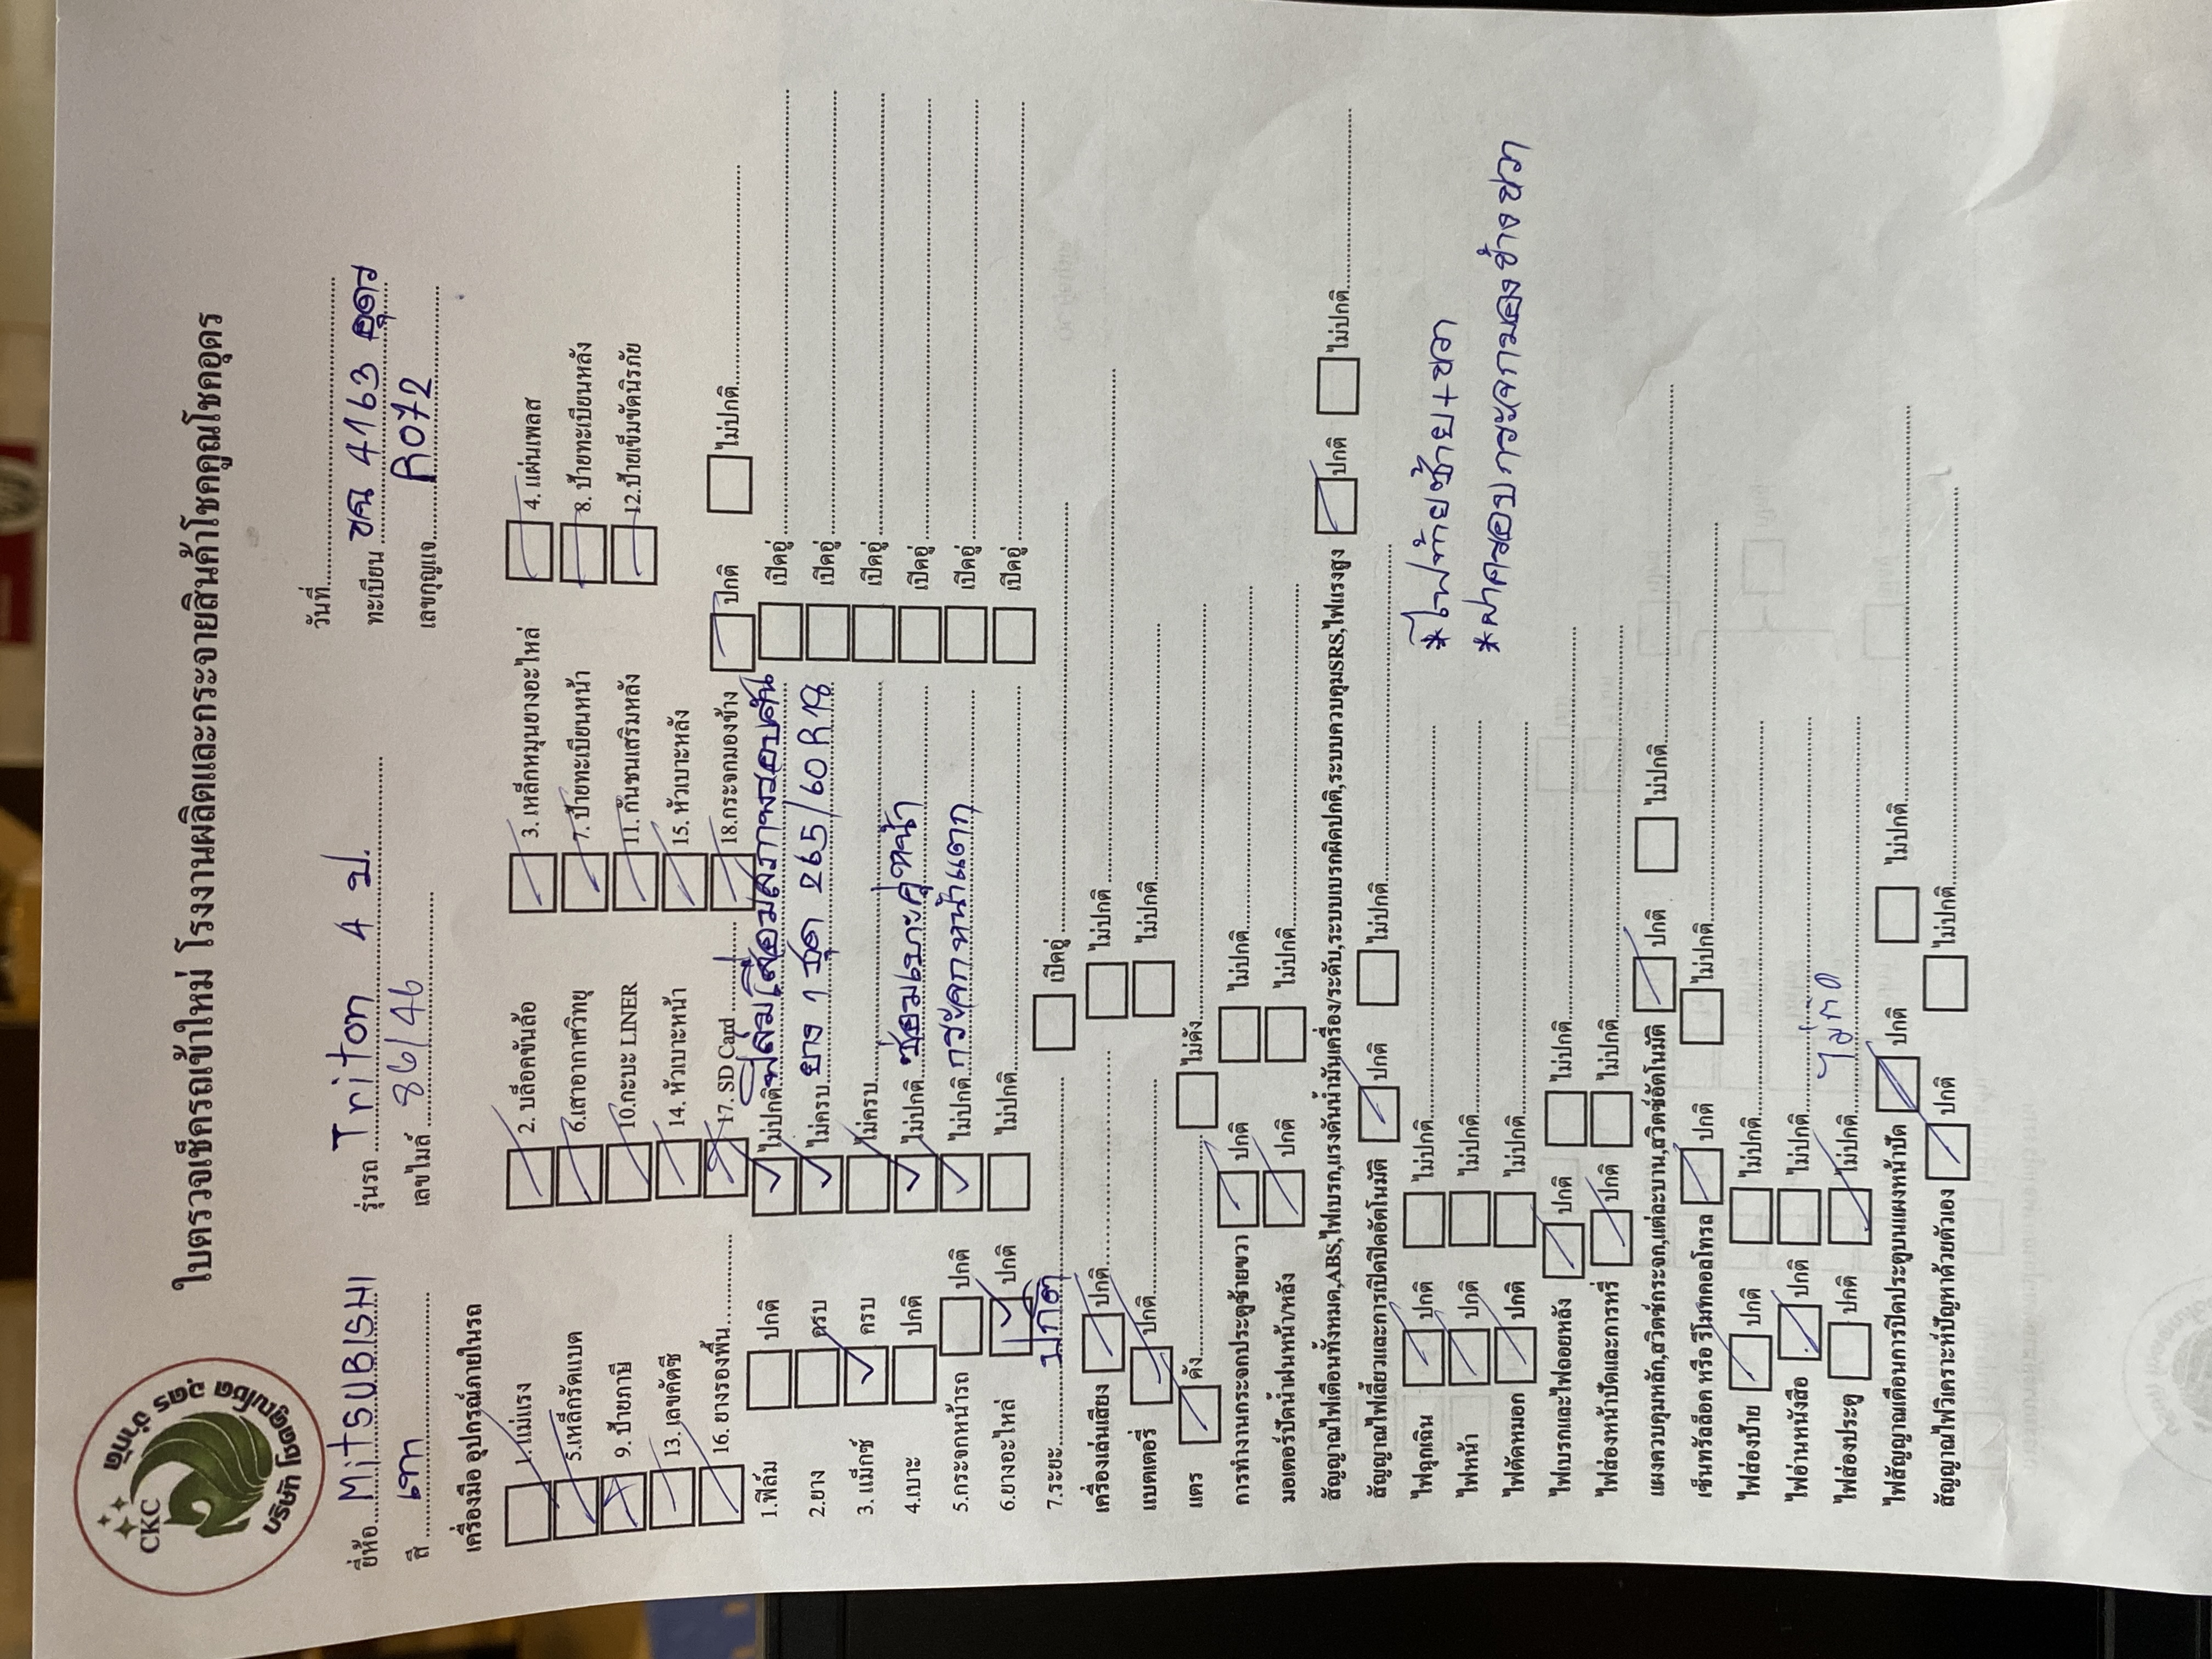 CKC
บริษัท โชคคูณโชค อุดร จำกัด
ใบตรวจเช็กรถเข้าใหม่ โรงงานผลิตและกระจายสินค้าโชคคูณโชคอุดร
วันที่
ยี่ห้อ MITSUBISHI รุ่นรถ Triton 4 ป. ทะเบียน 4163 อุดร
สี เทา เลขไมล์ 86/46 เลขกุญแจ R072
เครื่องมือ อุปกรณ์ภายในรถ
1. แม่แรง 2. บล็อคขันล้อ 3. เหล็กหมุนยางอะไหล่ 4. แผ่นเพลส
5.เหล็กรัดแบต 6.เสาอากาศวิทยุ 7. ป้ายทะเบียนหน้า 8. ป้ายทะเบียนหลัง
9. ป้ายภาษี 10.กะบะ LINER 11. กันชนเสริมหลัง 12.ป้ายเข็มขัดนิรภัย
13. เลขคัตซี 14. หัวเบาะหน้า 15. หัวเบาะหลัง
16. ยางรองพื้น 17. SD Card 18.กระจกมองข้าง ปกติ ไม่ปกติ
1.ฟิล์ม ปกติ ไม่ปกติ ฟิล์มเสื่อมสภาพรอบคัน เปิดอู่
2.ยาง ครบ ไม่ครบ ยาง 1 ชุด 265/60 R 18 เปิดอู่
3. แม็กซ์ ครบ ไม่ครบ เปิดอู่
4.เบาะ ปกติ ไม่ปกติ ซ่อมเบาะคู่หน้า เปิดอู่
5.กระจกหน้ารถ ปกติ ไม่ปกติ กระจกหน้าแตก เปิดอู่
6.ยางอะไหล่ ปกติ ไม่ปกติ เปิดอู่
7.ระยะ ปกติ เปิดอู่
เครื่องเล่นเสียง ปกติ ไม่ปกติ
แบตเตอรี่ ปกติ ไม่ปกติ
แตร ดัง ไม่ดัง
การทำงานกระจกประตูซ้ายขวา ปกติ ไม่ปกติ
มอเตอร์ปัดน้ำฝนหน้า/หลัง ปกติ ไม่ปกติ
สัญญาณไฟเตือนทั้งหมด,ABS,ไฟเบรก,แรงดันน้ำมันเครื่อง/ระดับ,ระบบเบรกผิดปกติ,ระบบควบคุมSRS,ไฟแรงสูง ปกติ ไม่ปกติ
สัญญาณไฟเลี้ยวและการเปิดปิดอัตโนมัติ ปกติ ไม่ปกติ
ไฟฉุกเฉิน ปกติ ไม่ปกติ
*ไฟท้ายซ้าย+ขวา
ไฟหน้า ปกติ ไม่ปกติ
*ฝาครอบกระจกมองข้างขวา
ไฟตัดหมอก ปกติ ไม่ปกติ
ไฟเบรกและไฟถอยหลัง ปกติ ไม่ปกติ
ไฟส่องหน้าปัดและการหรี่ ปกติ ไม่ปกติ
แผงควบคุมหลัก,สวิตช์กระจก,แต่ละบาน,สวิตช์อัตโนมัติ ปกติ ไม่ปกติ
เซ็นทรัลล็อค หรือ รีโมทคอลโทรล ปกติ ไม่ปกติ
ไฟส่องป้าย ปกติ ไม่ปกติ
ไฟอ่านหนังสือ ปกติ ไม่ปกติ
ไฟส่องประตู ปกติ ไม่ปกติ ไม่ติด
ไฟสัญญาณเตือนการปิดประตูบนแผงหน้าปัด ปกติ ไม่ปกติ
สัญญาณไฟวิเคราะห์ปัญหาด้วยตัวเอง ปกติ ไม่ปกติ